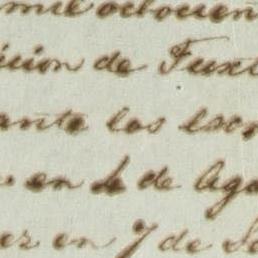 mil ochocien
icion de Tuxt
ante los escr
en 4 de Ago
ez en 7 de Se